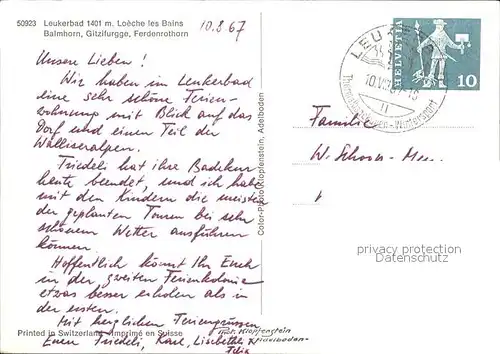 50923 Leukerbad 1401 m. Loèche les Bains
Balmhorn, Gitzifurgge, Ferdenrothorn
10.8.67
Unsere Lieben!
Wir haben im Leukerbad
eine sehr schöne Ferien-
wohnung mit Blick auf das
Dorf und einen Teil der
Walliseralpen.
Friedeli hat ihre Badekur
heute beendet, und ich habe
mit den Kindern die meisten
der geplanten Touren bei sehr
schönem Wetter ausführen
können.
Hoffentlich könnt Ihr Euch
in der zweiten Ferienkolonie
etwas besser erholen als in
der ersten.
Mit herzlichen Feriengrüssen
Euer Friedeli, Karl, Lisebethli &
Felix
Printed in Switzerland - Imprimé en Suisse
Color-Photo Klopfenstein, Adelboden
LEUKERBAD
10.VIII.67-15
HELVETIA
10
Familie
W. Schoor-
privacy protection
Datenschutz
Klopfenstein
Adelboden